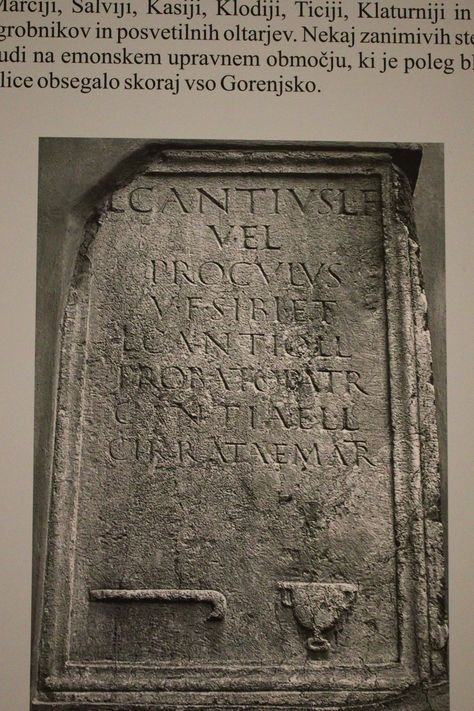 Marciji, Salviji, Kasiji, Klodiji, Ticiji, Klaturniji in
grobnikov in posvetilnih oltarjev. Nekaj zanimivih ste
udi na emonskem upravnem območju, ki je poleg bl
lice obsegalo skoraj vso Gorenjsko.
L CANTIVS L F
VEL
PROCVLVS
V·F·SIBI ET
L CANTIO L L
PROBATO PATR
CANTIAE L L
CIRRATAE MATR